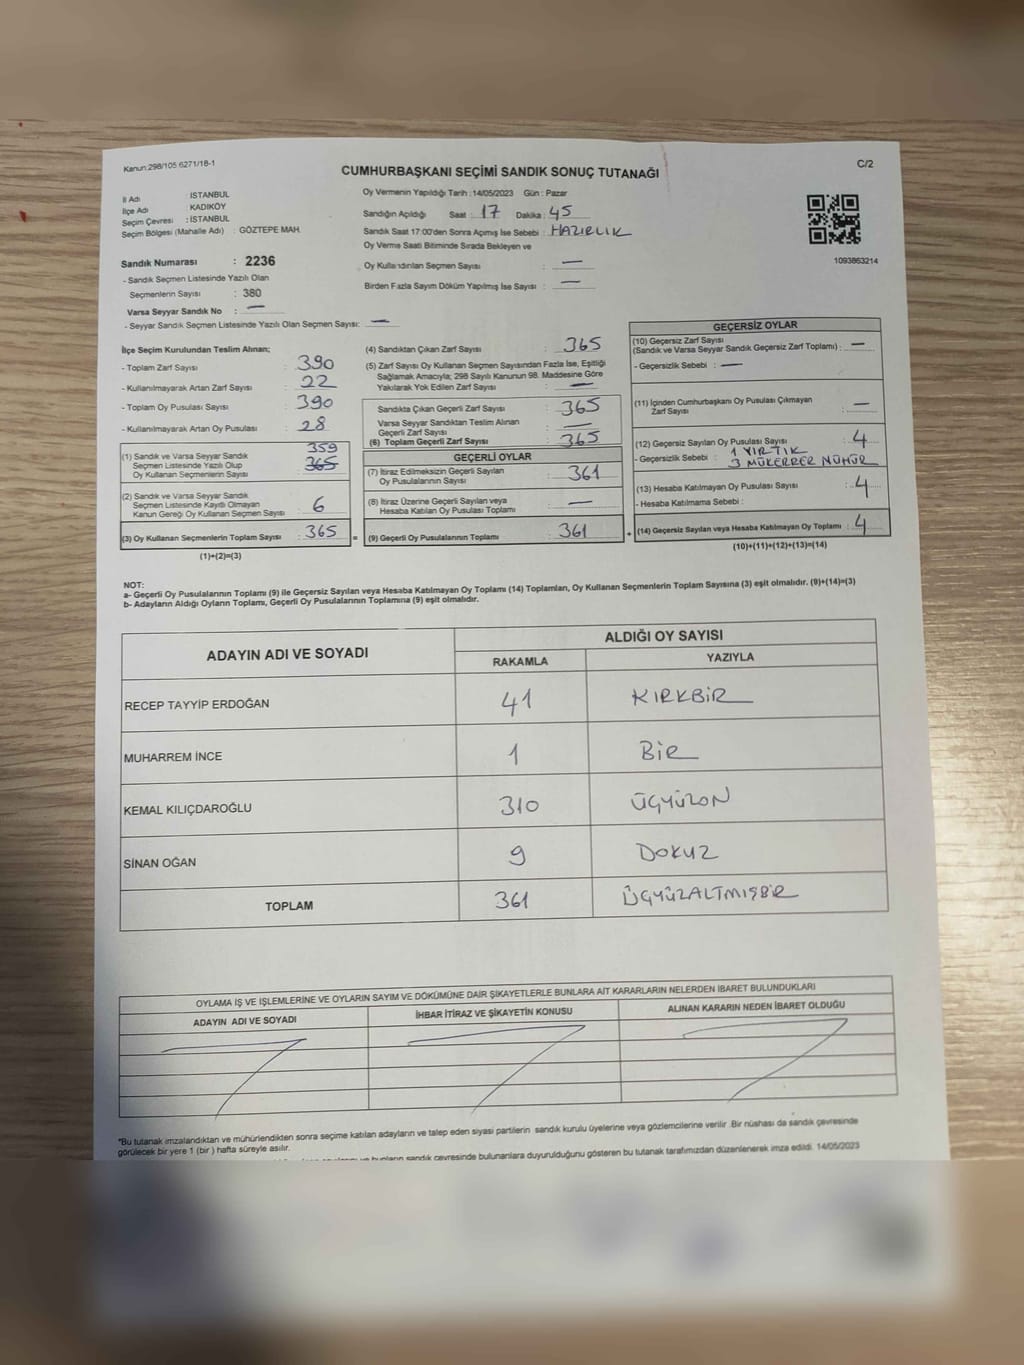 Kanun:298/105 6271/18-1
C/2
CUMHURBAŞKANI SEÇİMİ SANDIK SONUÇ TUTANAĞI
İl Adı : İSTANBUL
İlçe Adı : KADIKÖY
Seçim Çevresi : İSTANBUL
Seçim Bölgesi (Mahalle Adı) : GÖZTEPE MAH.
Sandık Numarası : 2236
- Sandık Seçmen Listesinde Yazılı Olan
Seçmenlerin Sayısı : 380
Varsa Seyyar Sandık No : —
- Seyyar Sandık Seçmen Listesinde Yazılı Olan Seçmen Sayısı: —
Oy Vermenin Yapıldığı Tarih : 14/05/2023 Gün : Pazar
Sandığın Açıldığı Saat : 17 Dakika : 45
Sandık Saat 17:00'den Sonra Açılmış İse Sebebi : HAZIRLIK
Oy Verme Saati Bitiminde Sırada Bekleyen ve
Oy Kullandırılan Seçmen Sayısı : —
Birden Fazla Sayım Döküm Yapılmış İse Sayısı : —
1093863214
İlçe Seçim Kurulundan Teslim Alınan;
- Toplam Zarf Sayısı : 390
- Kullanılmayarak Artan Zarf Sayısı : 22
- Toplam Oy Pusulası Sayısı : 390
- Kullanılmayarak Artan Oy Pusulası : 28
359
(1) Sandık ve Varsa Seyyar Sandık
Seçmen Listesinde Yazılı Olup
Oy Kullanan Seçmenlerin Sayısı : 365
(2) Sandık ve Varsa Seyyar Sandık
Seçmen Listesinde Kayıtlı Olmayan
Kanun Gereği Oy Kullanan Seçmen Sayısı : 6
(3) Oy Kullanan Seçmenlerin Toplam Sayısı : 365
(1)+(2)=(3)
(4) Sandıktan Çıkan Zarf Sayısı : 365
(5) Zarf Sayısı Oy Kullanan Seçmen Sayısından Fazla İse, Eşitliği
Sağlamak Amacıyla; 298 Sayılı Kanunun 98. Maddesine Göre
Yakılarak Yok Edilen Zarf Sayısı : —
Sandıkta Çıkan Geçerli Zarf Sayısı : 365
Varsa Seyyar Sandıktan Teslim Alınan
Geçerli Zarf Sayısı : —
(6) Toplam Geçerli Zarf Sayısı : 365
GEÇERLİ OYLAR
(7) İtiraz Edilmeksizin Geçerli Sayılan
Oy Pusulalarının Sayısı : 361
(8) İtiraz Üzerine Geçerli Sayılan veya
Hesaba Katılan Oy Pusulası Toplamı : —
= (9) Geçerli Oy Pusulalarının Toplamı : 361 +
GEÇERSİZ OYLAR
(10) Geçersiz Zarf Sayısı
(Sandık ve Varsa Seyyar Sandık Geçersiz Zarf Toplamı) : —
- Geçersizlik Sebebi : —
(11) İçinden Cumhurbaşkanı Oy Pusulası Çıkmayan
Zarf Sayısı : —
(12) Geçersiz Sayılan Oy Pusulası Sayısı : 4
- Geçersizlik Sebebi : 1 YIRTIK
3 MÜKERRER MÜHÜR
(13) Hesaba Katılmayan Oy Pusulası Sayısı : 4
- Hesaba Katılmama Sebebi :
(14) Geçersiz Sayılan veya Hesaba Katılmayan Oy Toplamı : 4
(10)+(11)+(12)+(13)=(14)
NOT:
a- Geçerli Oy Pusulalarının Toplamı (9) ile Geçersiz Sayılan veya Hesaba Katılmayan Oy Toplamı (14) Toplamları, Oy Kullanan Seçmenlerin Toplam Sayısına (3) eşit olmalıdır. (9)+(14)=(3)
b- Adayların Aldığı Oyların Toplamı, Geçerli Oy Pusulalarının Toplamına (9) eşit olmalıdır.
ADAYIN ADI VE SOYADI
ALDIĞI OY SAYISI
RAKAMLA YAZIYLA
RECEP TAYYİP ERDOĞAN 41 KIRKBİR
MUHARREM İNCE 1 BİR
KEMAL KILIÇDAROĞLU 310 ÜÇYÜZON
SİNAN OĞAN 9 DOKUZ
TOPLAM 361 ÜÇYÜZALTMIŞBİR
OYLAMA İŞ VE İŞLEMLERİNE VE OYLARIN SAYIM VE DÖKÜMÜNE DAİR ŞİKAYETLERLE BUNLARA AİT KARARLARIN NELERDEN İBARET BULUNDUKLARI
ADAYIN ADI VE SOYADI İHBAR İTİRAZ VE ŞİKAYETİN KONUSU ALINAN KARARIN NEDEN İBARET OLDUĞU
*Bu tutanak imzalandıktan ve mühürlendikten sonra seçime katılan adayların ve talep eden siyasi partilerin sandık kurulu üyelerine veya gözlemcilerine verilir .Bir nüshası da sandık çevresinde
görülecek bir yere 1 (bir ) hafta süreyle asılır.
ve bunların sandık çevresinde bulunanlara duyurulduğunu gösteren bu tutanak tarafımızdan düzenlenerek imza edildi. 14/05/2023